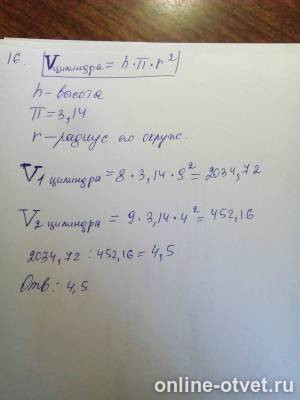 16. Vцилиндра = h·π·r²
h-высота
π=3,14
r-радиус его окруж.
V1 цилиндра = 8·3,14·9²=2034,72
V2 цилиндра = 9·3,14·4²=452,16
2034,72 : 452,16 = 4,5
Отв: 4,5
online-otvet.ru